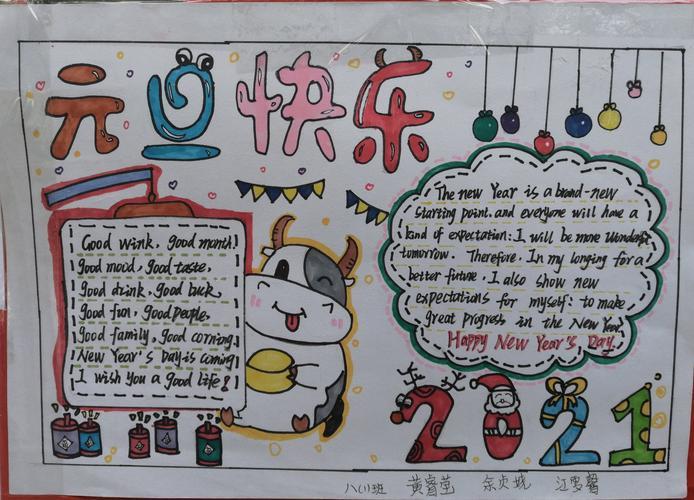 元旦快乐
Good wink, good month!
good mood, good taste,
good drink, good buck,
good fun, good people,
good family, good corning,
New Year's Day is coming
I wish you a good life!
The new Year is a brand-new
starting point. and everyone will have a
kind of expectation: I will be more wonderful
tomorrow. Therefore. In my longing for a
better future, I also show new
expectations for myself: to make
great progress in the New Year.
Happy New Year's Day.
2021
八(1)班 黄睿莹